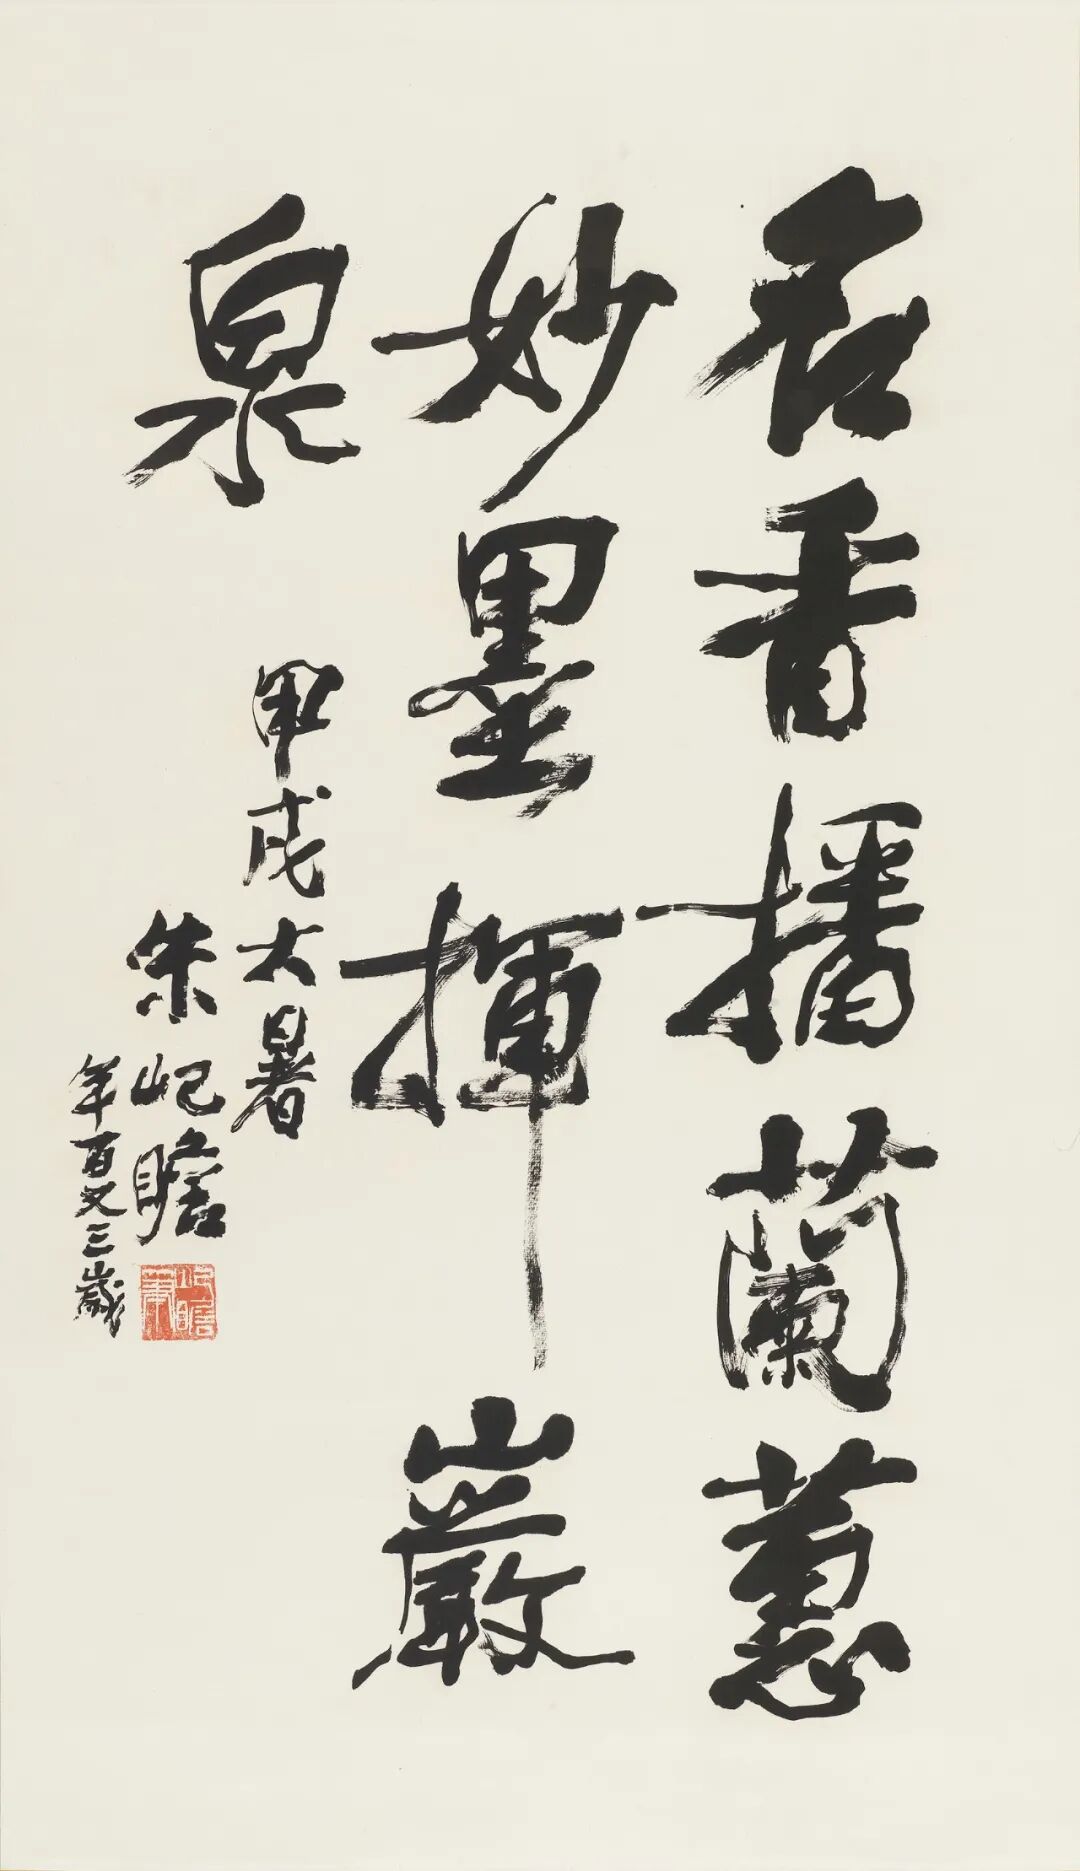 名香播蘭蕙
妙墨揮巖
泉
甲戌大暑
朱屺瞻
年百又三歲
屺瞻
朱